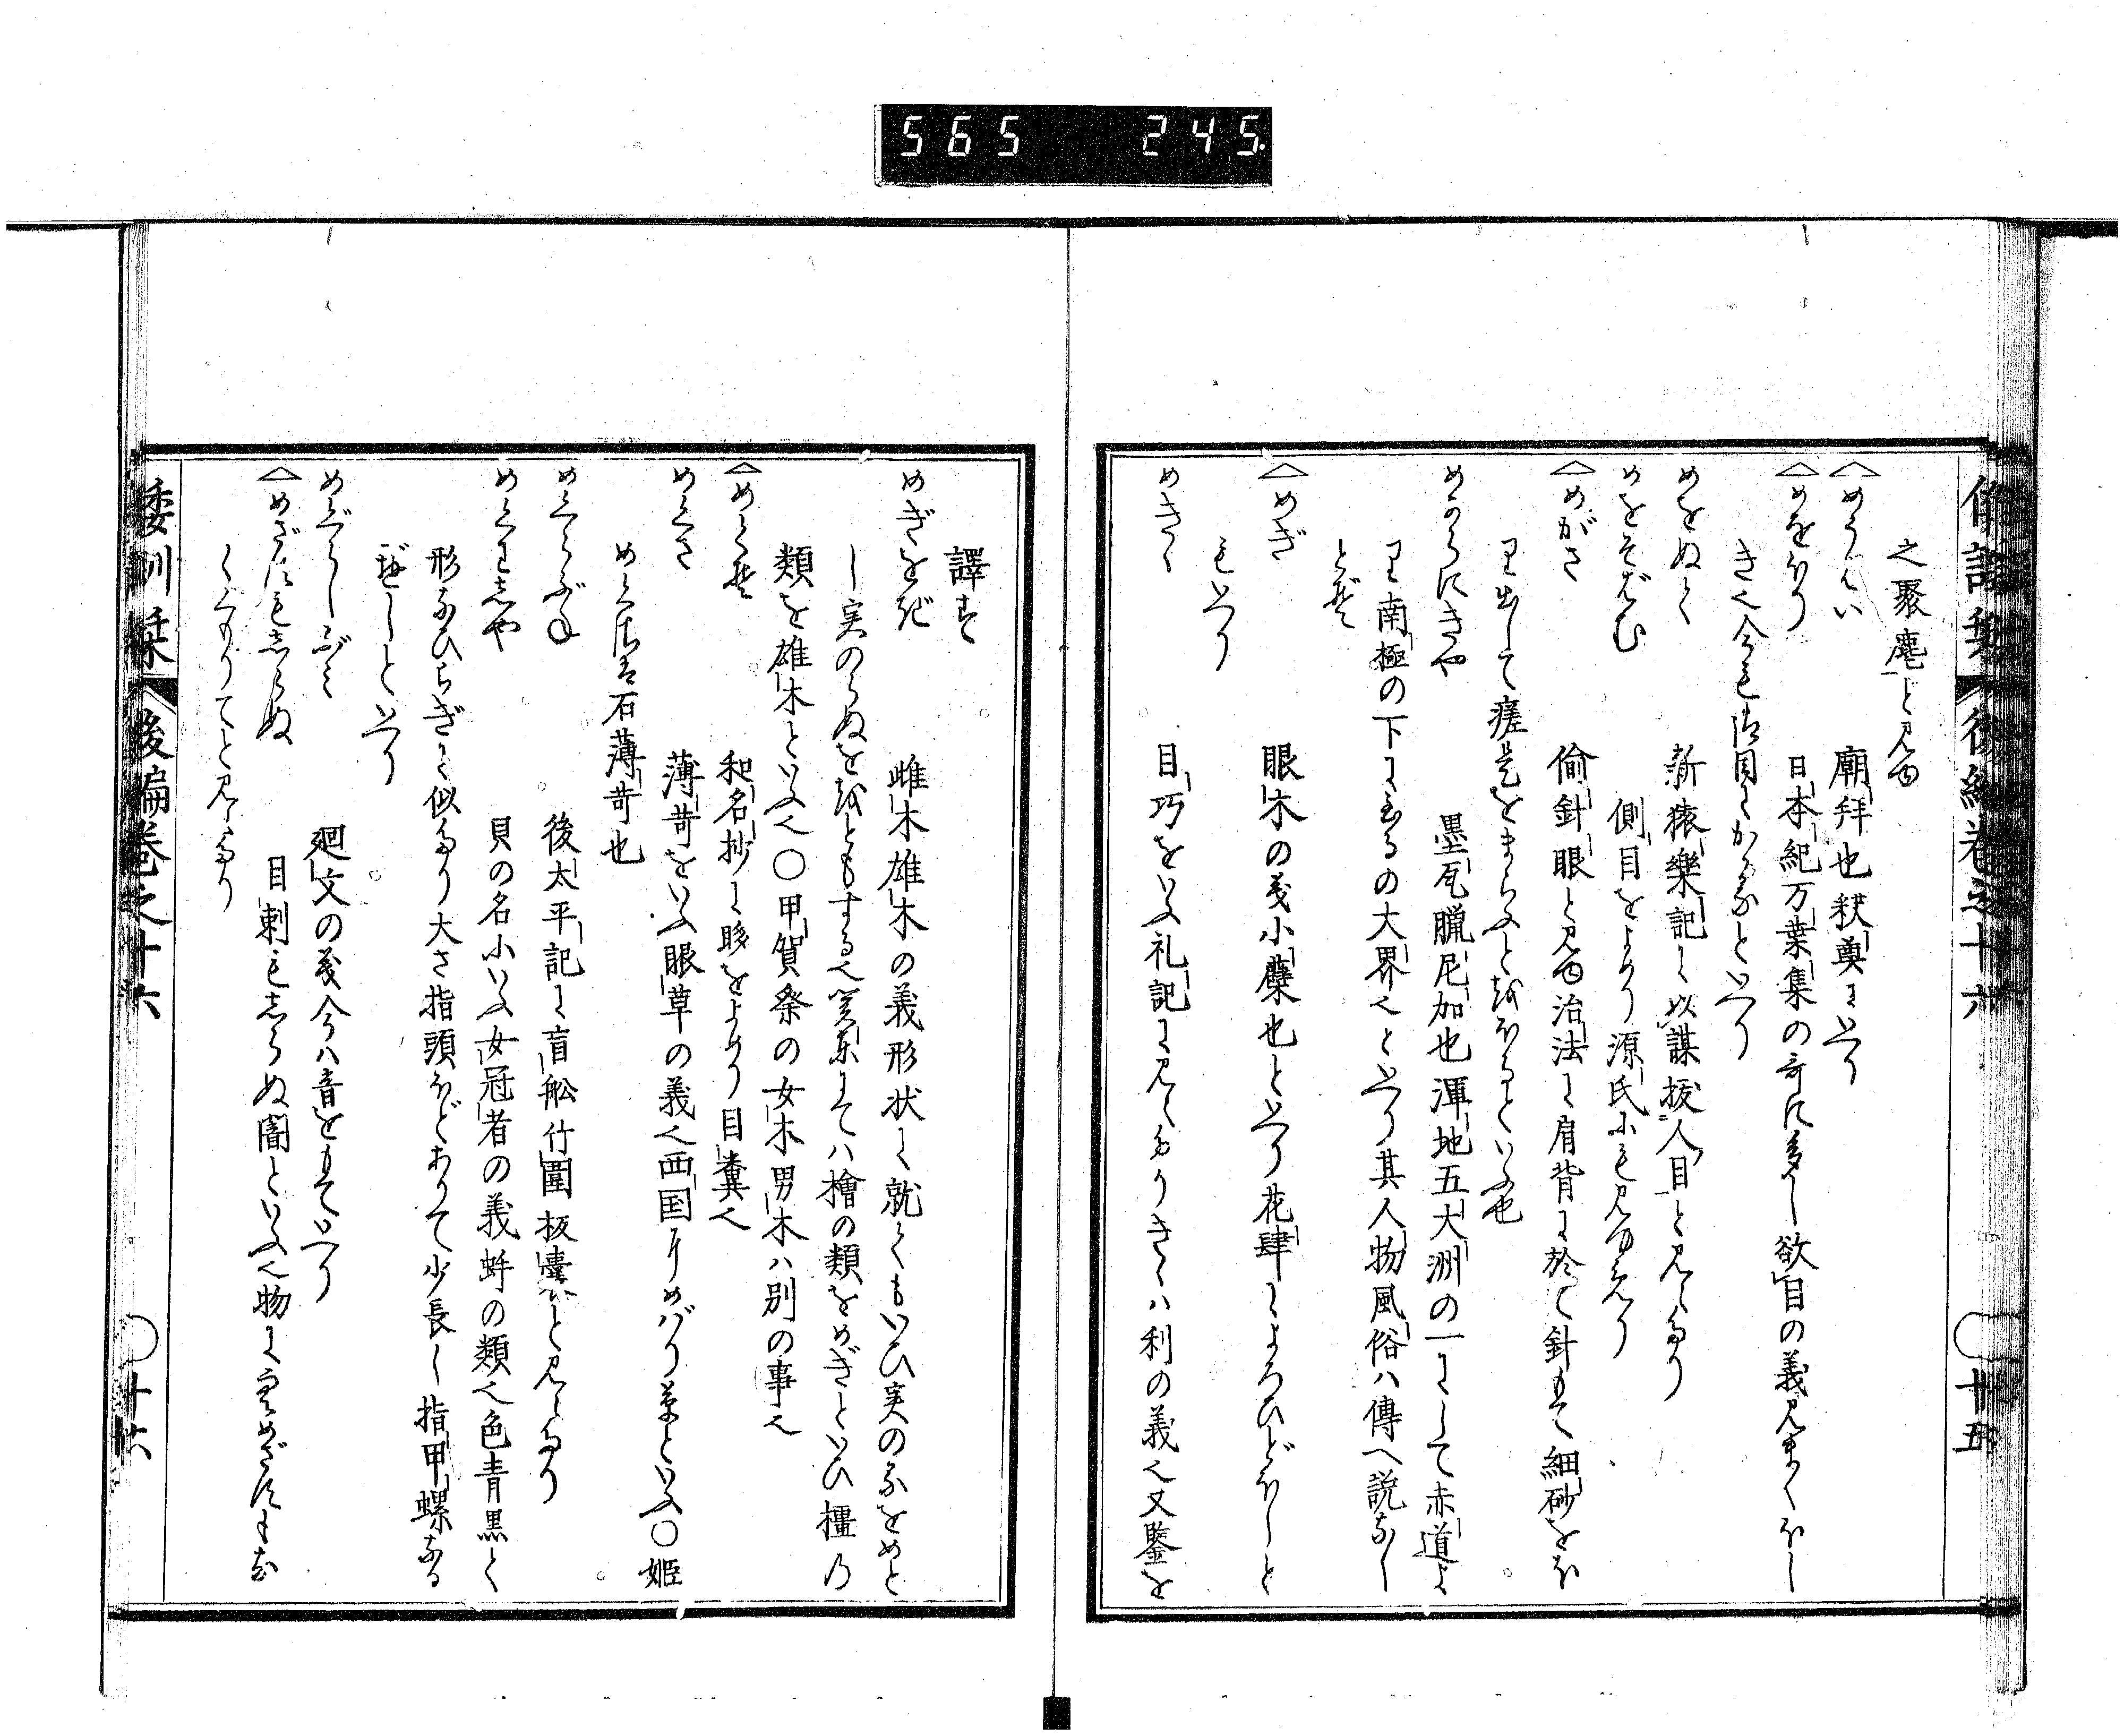 565 245.
之聚麀と見ゆ
めうはい 廟拝也秋奠にいへり
めをほり 日本紀万葉集の哥に多し欲目の義見まくほし
き也今も御目にかゝるなといへり
めをぬく 新猿樂記に以謀抜人目と見えたり
めをそばむ 側目をよめり源氏にも見えたり
めがさ 偷針眼と見ゆ治法に肩背に於て針もて細砂をほ
り出して
めからにきや 墨瓦臘尼加也渾地五大洲の一にして赤道よ
り南極の下に至るの大界也といへり其人物風俗ハ傳へ説なし
とぞ
めぎ 眼木の義小蘗也といへり花肆によろひどほしと
もいへり
めきゝ 目巧をいふ礼記に見えたりきゝハ利の義也又鑒を
倭訓栞 後編巻之十六 十五
譯せり
めぎをぎ 雌木雄木の義形状に就てもいひ実のなるをめと
し実のらぬををともする也 にてハ檜の類をめぎといひ橿乃
類を雄木といふ也○甲賀祭の女木男木ハ別の事也
めくそ 和名抄に眵をよめり目糞也
めくさ 薄苛をいふ眼草の義也西国にめばり草といふ○姫
めくさは石薄苛也
めくらぶね 後太平記に盲舩竹圍板 と見えたり
めくわじや 貝の名にいふ女冠者の義蚌の類也色青黒く
形なひらぎに似たり大さ指頭ほどありて少長し指甲螺なる
べしといへり
めぐらしぶみ 廻文の義今ハ音をもていへり
めざすもしらぬ 目刺もしらぬ闇といふ也物に
くくもりてと見えたり
倭訓栞 後編巻之十六 十六